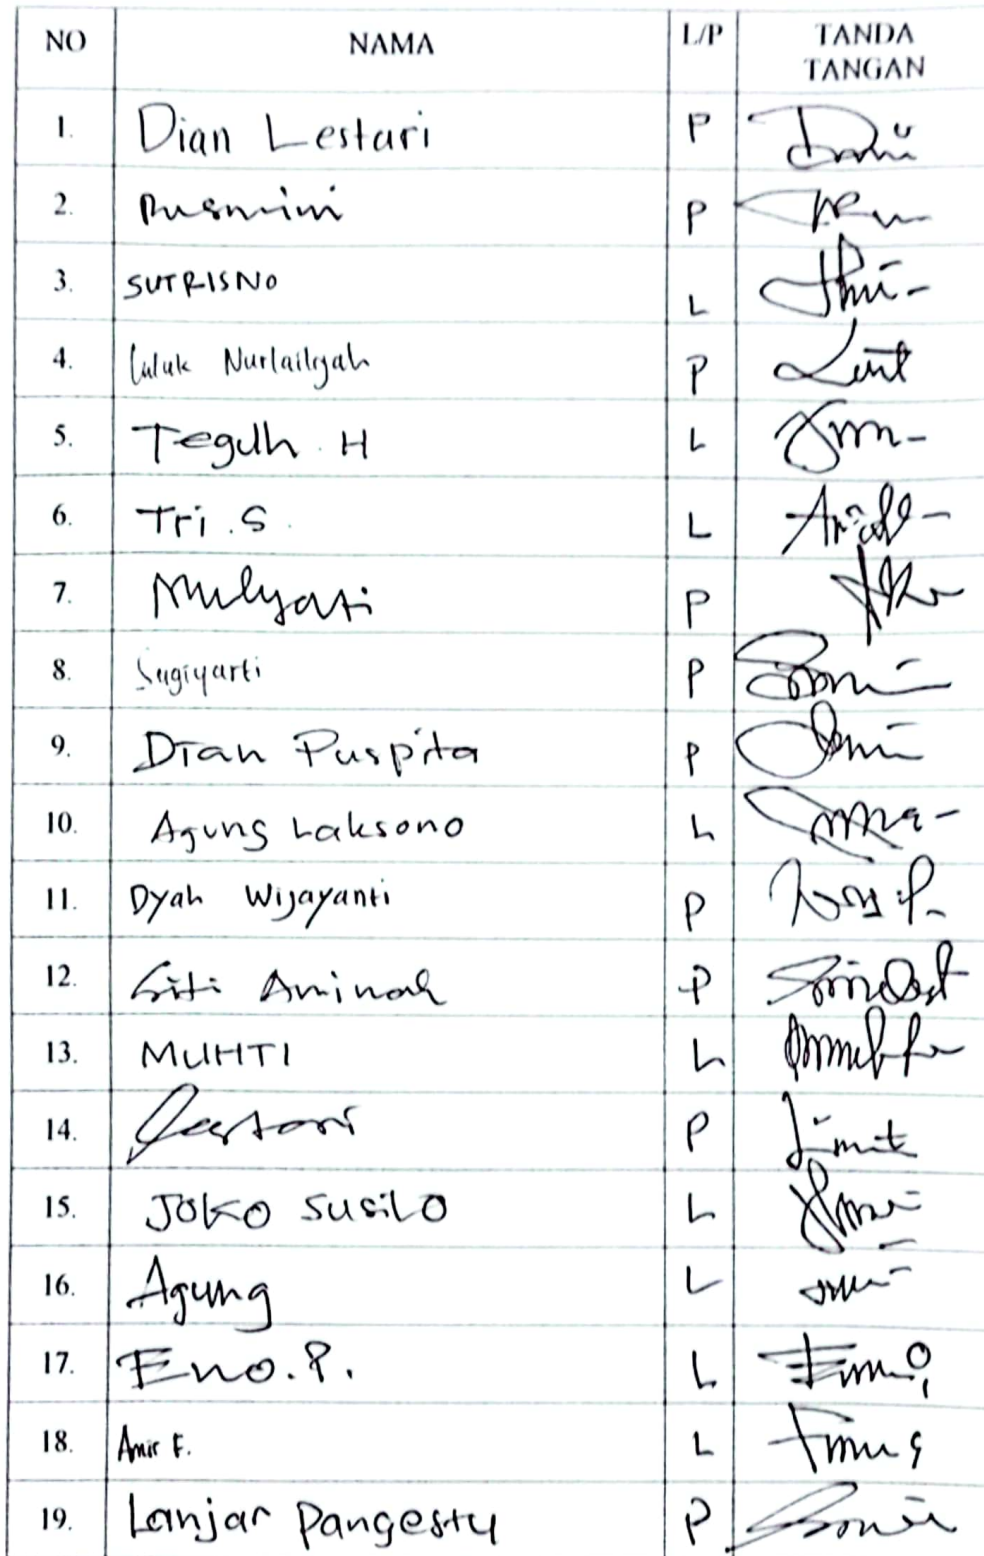 NO NAMA L/P TANDA TANGAN
1. Dian Lestari P
2. Rusmini P
3. SUTRISNO L
4. Luluk Nurlailiyah P
5. Teguh . H L
6. Tri . S. L
7. Mulyati P
8. Sugiyarti P
9. Dian Puspita P
10. Agung Laksono L
11. Dyah Wijayanti P
12. Siti Aminah P
13. MUHTI L
14. Lestari P
15. JOKO SUSILO L
16. Agung L
17. Eno. P. L
18. Amir F. L
19. Lanjar Pangestu P